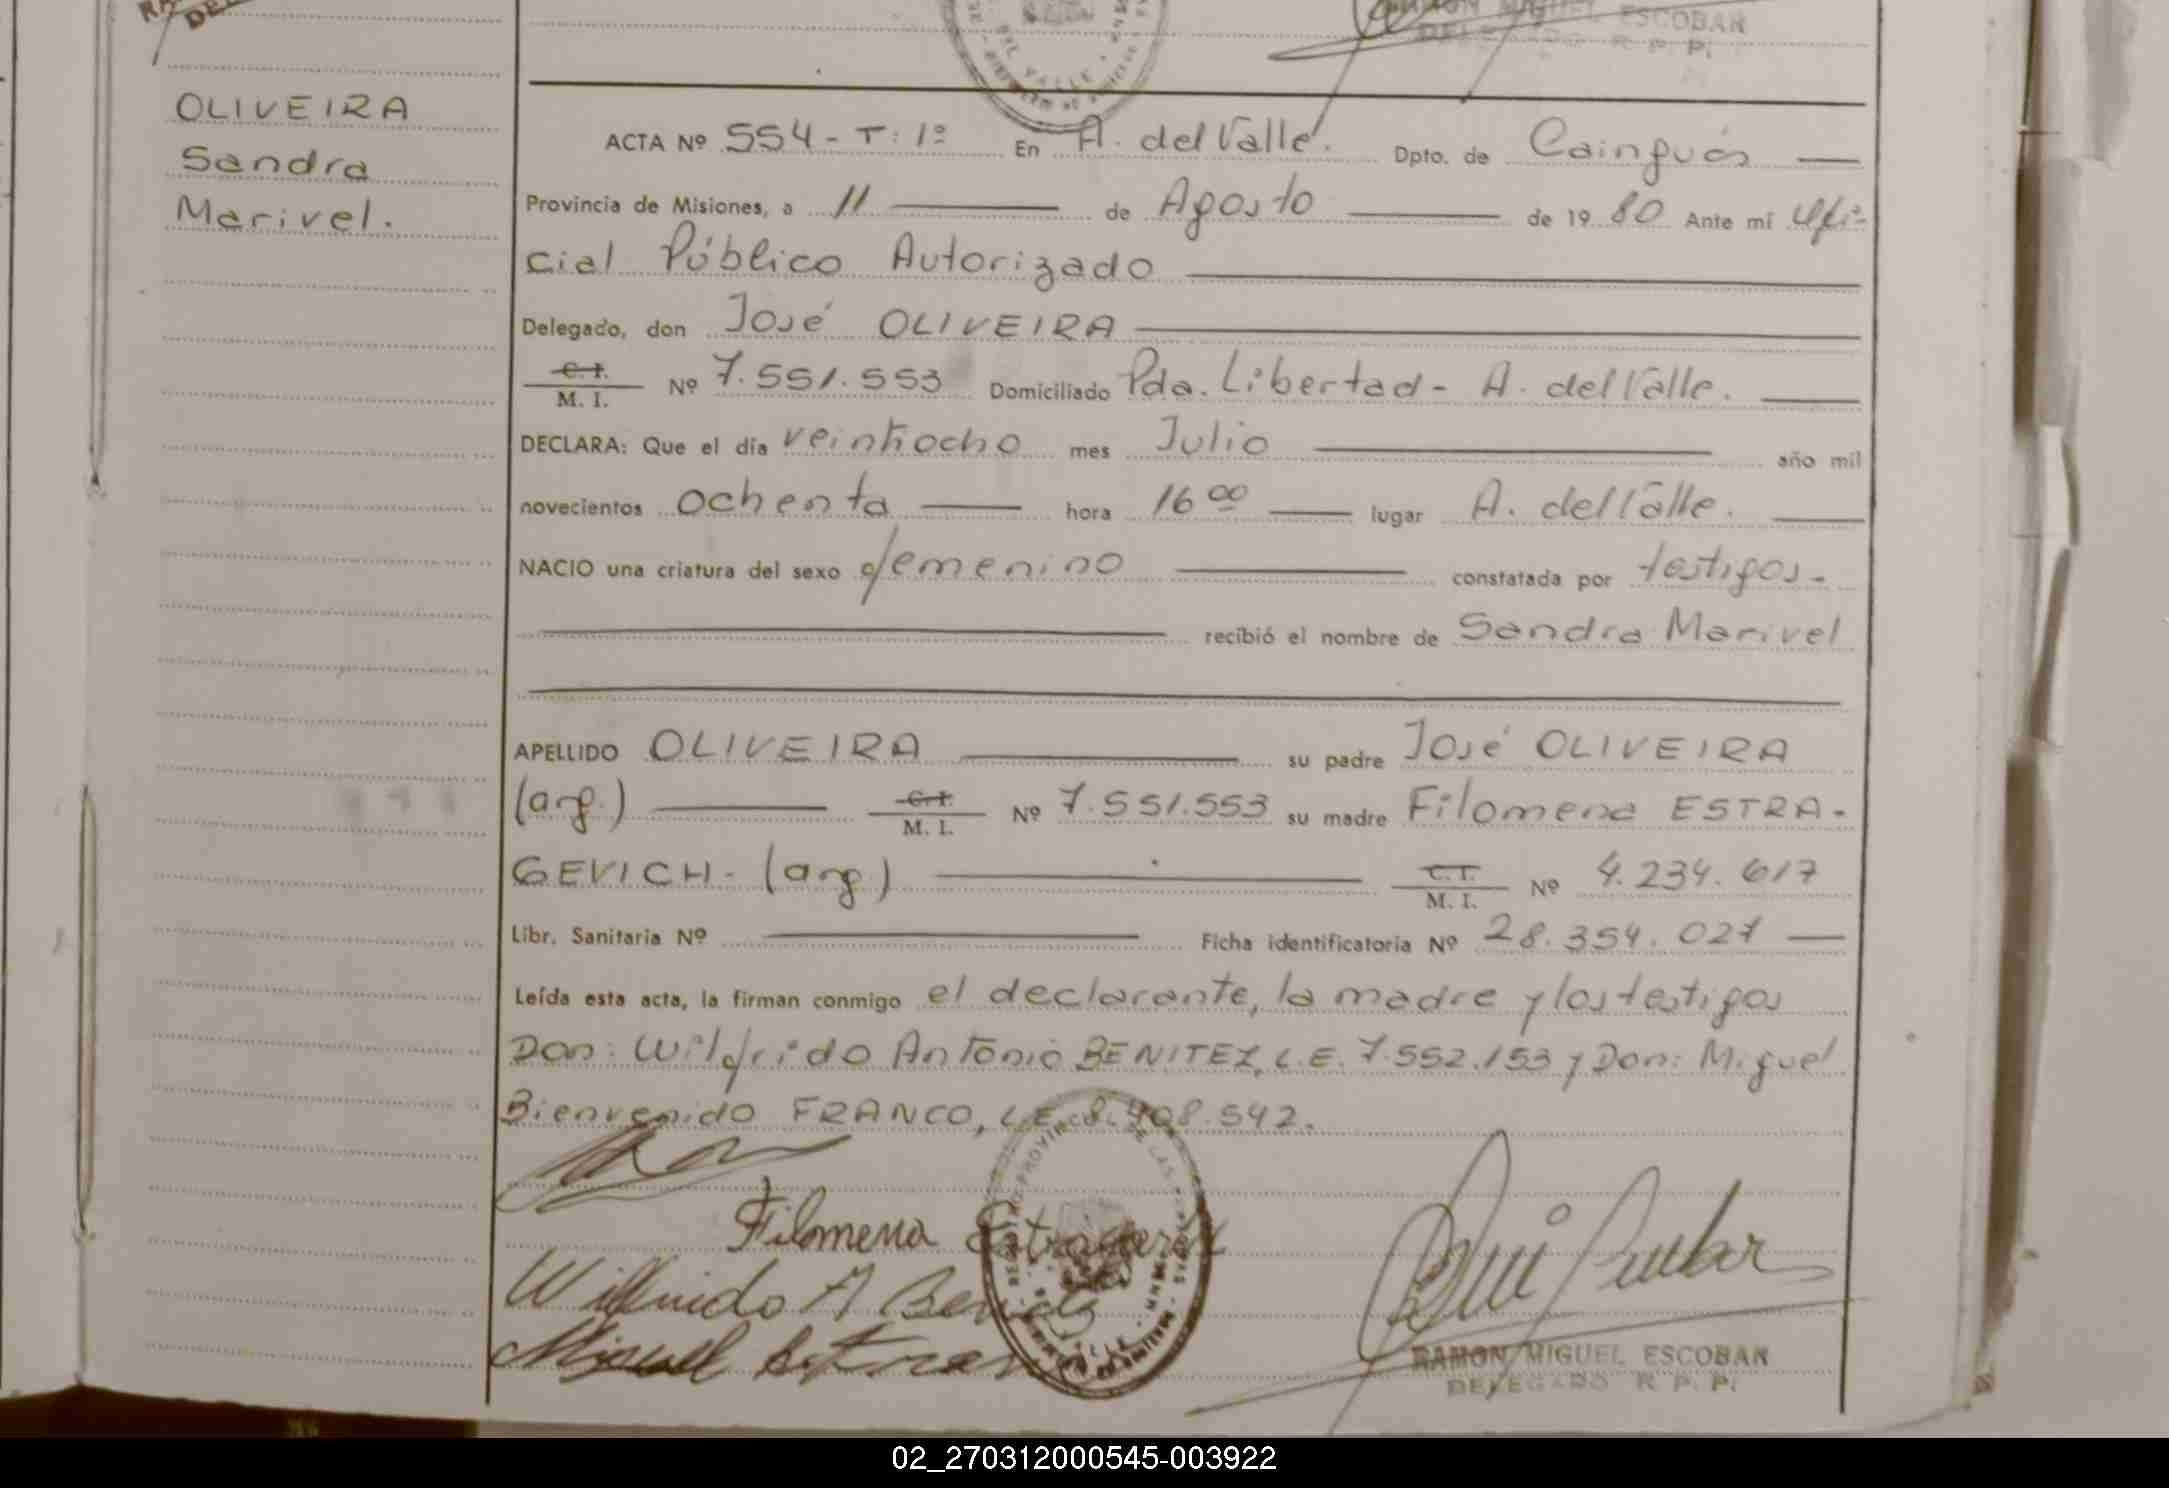 RAMON MIGUEL ESCOBAR
DELEGADO R. P. P.
OLIVEIRA
Sandra
Marivel.
ACTA Nº 554 - T: 1º En A. del Valle. Dpto. de Cainguás
Provincia de Misiones, a 11 de Agosto de 19 80 Ante mí Ofi-
cial Público Autorizado
Delegado, don José OLIVEIRA
C. I.
M. I. Nº 7.551.553 Domiciliado Pda. Libertad - A. del Valle.
DECLARA: Que el día veintiocho mes Julio año mil
novecientos ochenta hora 16 00 lugar A. del Valle.
NACIO una criatura del sexo femenino constatada por testigos.-
recibió el nombre de Sandra Marivel
APELLIDO OLIVEIRA su padre José OLIVEIRA
(arg.) C. I.
M. I. Nº 7.551.553 su madre Filomena ESTRA-
GEVICH - (arg) C. I.
M. I. Nº 4.234.617
Libr. Sanitaria Nº Ficha identificatoria Nº 28.354.027
Leída esta acta, la firman conmigo el declarante, la madre y los testigos
Don: Wilfrido Antonio BENITEZ, L.E. 7.552.153 y Don: Miguel
Bienvenido FRANCO, L.E. 8.408.542.
Filomena
Wilfrido A
RAMON MIGUEL ESCOBAR
DELEGADO R. P. P.
02_270312000545-003922